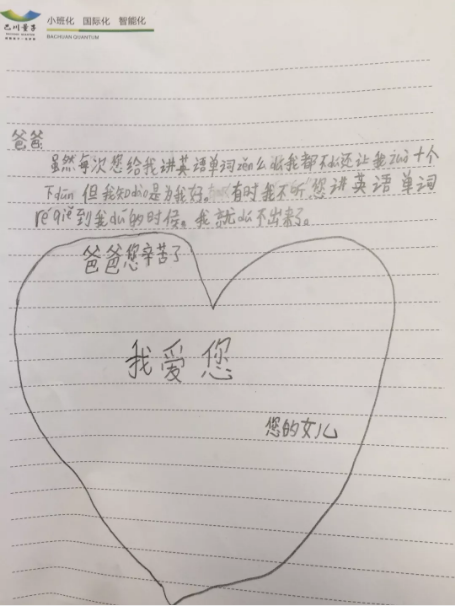 巴川量子
小班化 国际化 智能化
BACHUAN QUANTUM
爸爸
虽然每次您给我讲英语单词zěn么做我都不du还让我zuò十个
下dūn 但我知dào是为我好。有时我不听您讲英语单词
ré qiě到我dú的时候。我就du不出来了。
爸爸您辛苦了
我爱您
您的女儿